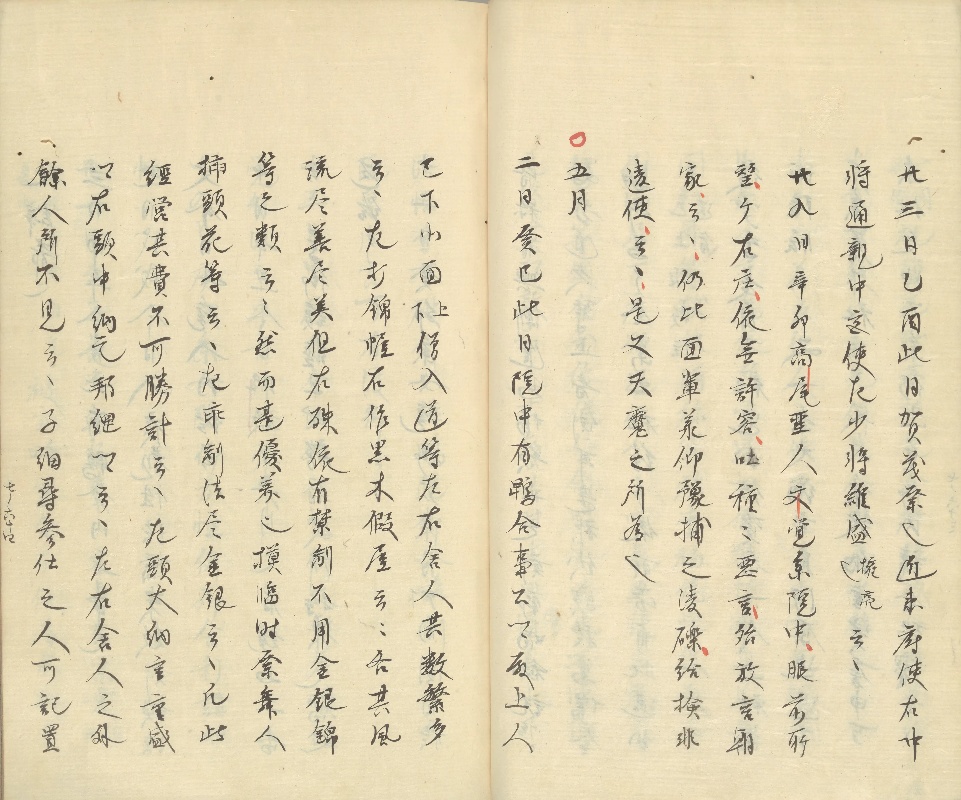 廿三日乙酉此日賀茂祭也近来府使右中
将通親中宮使左少将維盛也(桃尻)云々
廿九日辛卯高尾聖人文覚参院中眼前所
望ケ右庄依無許容吐種々悪言殆放言朝
家云々仍北面輩承仰予捕之陵礫給検非
違使云々是又天魔之所為也
五月
二日癸巳此日院中有鴨合事公以殿上人
已下北面上下僧入道等左右舎人其数繁多
云々左打錦帷右作黒木假屋云々各其風
流尽善尽美但右殊依有禁制不用金銀錦
等之類云々然而甚優美也模臨時祭舞人
挿頭花等云々左乖制法尽金銀云々凡此
経営其費不可勝計云々左頭大納言重盛
以右頭中納言邦綱以云々左右舎人之外
餘人所不見云々子細尋参仕之人可記置